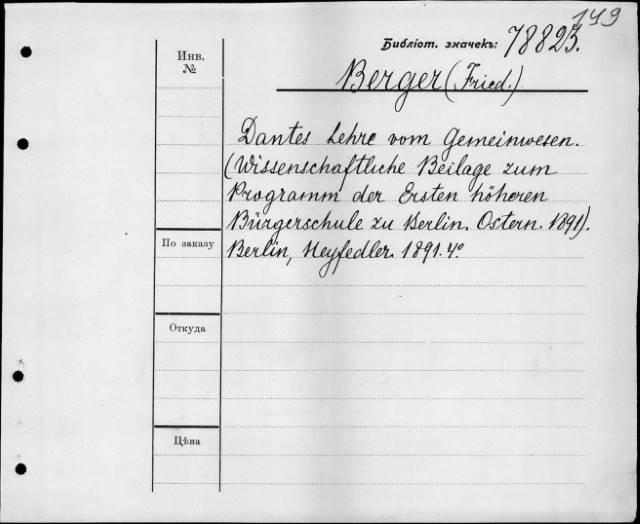 149
Библіот. значекъ: 78823.
Инв.
№
Berger (Fried.)
Dantes Lehre vom Gemeinwesen.
(Wissenschaftliche Beilage zum
Programm der Ersten höheren
Bürgerschule zu Berlin. Ostern. 1891).
По заказу
Berlin, Heyfedler. 1891. 4º
Откуда
Цѣна